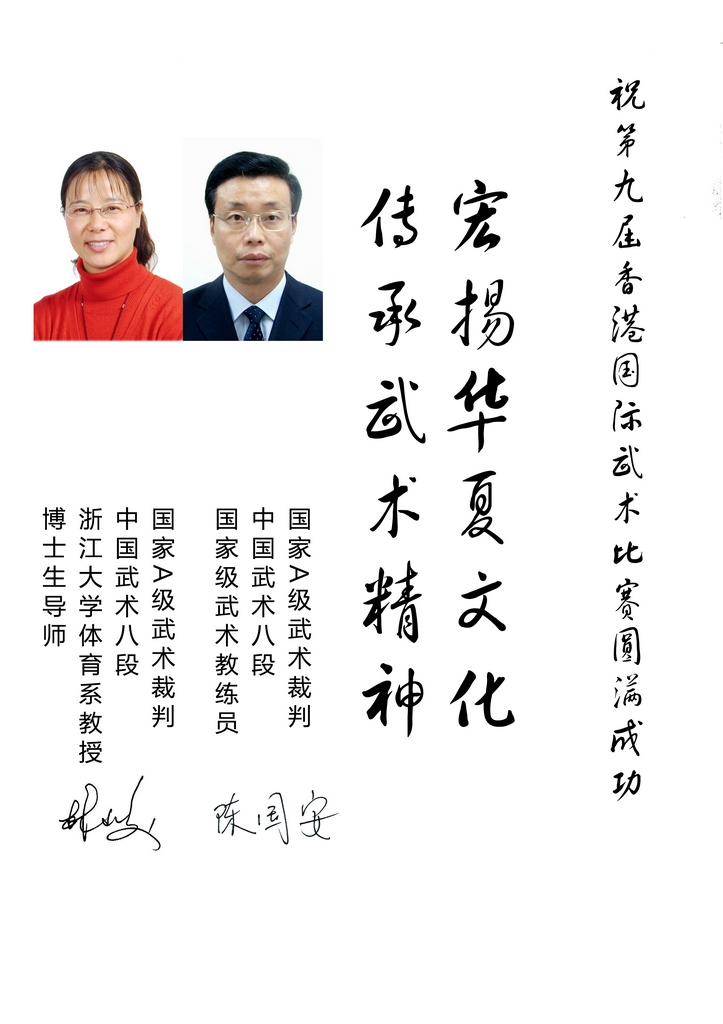 祝第九届香港国际武术比赛圆满成功
宏揚华夏文化
传承武术精神
国家A级武术裁判
中国武术八段
国家级武术教练员
陈国安
国家A级武术裁判
中国武术八段
浙江大学体育系教授
博士生导师